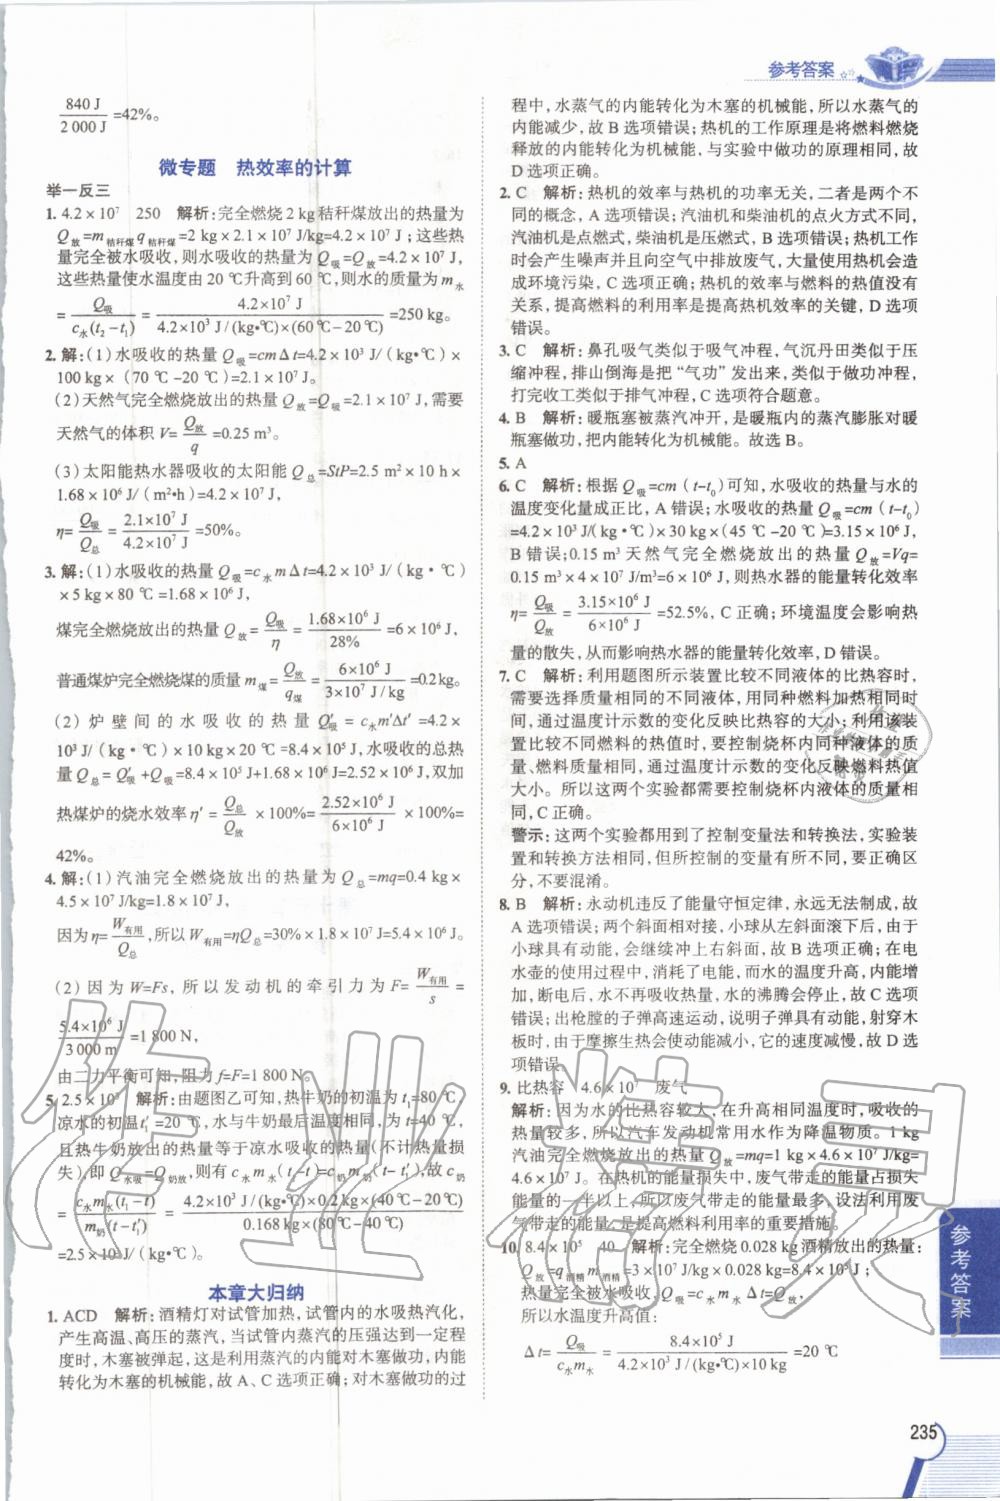 参考答案
840 J / 2 000 J =42%。
微专题 热效率的计算
举一反三
1. 4.2×10⁷ 250 解析:完全燃烧 2 kg秸秆煤放出的热量为
Q放=m秸秆煤q秸秆煤=2 kg×2.1×10⁷ J/kg=4.2×10⁷ J;这些热
量完全被水吸收,则水吸收的热量为 Q吸=Q放=4.2×10⁷ J,
这些热量使水温度由 20 ℃升高到 60 ℃,则水的质量为 m水
= Q吸 / c水(t₂-t₁) = 4.2×10⁷ J / 4.2×10³ J/(kg•℃)×(60 ℃-20 ℃) =250 kg。
2. 解:(1)水吸收的热量 Q吸=cmΔt=4.2×10³ J/(kg•℃)×
100 kg×(70 ℃-20 ℃)=2.1×10⁷ J。
(2)天然气完全燃烧放出的热量 Q放=Q吸=2.1×10⁷ J,需要
天然气的体积 V= Q放 / q =0.25 m³。
(3)太阳能热水器吸收的太阳能 Q总=StP=2.5 m²×10 h×
1.68×10⁶ J/(m²•h)=4.2×10⁷ J,
η= Q吸 / Q总 = 2.1×10⁷ J / 4.2×10⁷ J =50%。
3. 解:(1)水吸收的热量 Q吸=c水mΔt=4.2×10³ J/(kg•℃)
×5 kg×80 ℃=1.68×10⁶ J,
煤完全燃烧放出的热量 Q放= Q吸 / η = 1.68×10⁶ J / 28% =6×10⁶ J,
普通煤炉完全燃烧煤的质量 m煤= Q放 / q煤 = 6×10⁶ J / 3×10⁷ J/kg =0.2 kg。
(2)炉壁间的水吸收的热量 Q′吸=c水m′Δt′=4.2×
10³ J/(kg•℃)×10 kg×20 ℃=8.4×10⁵ J,水吸收的总热
量 Q总=Q′吸+Q吸=8.4×10⁵ J+1.68×10⁶ J=2.52×10⁶ J,双加
热煤炉的烧水效率 η′= Q总 / Q放 ×100%= 2.52×10⁶ J / 6×10⁶ J ×100%=
42%。
4. 解:(1)汽油完全燃烧放出的热量为 Q总=mq=0.4 kg×
4.5×10⁷ J/kg=1.8×10⁷ J,
因为η= W有用 / Q总 ,所以 W有用=ηQ总=30%×1.8×10⁷ J=5.4×10⁶ J。
(2)因为 W=Fs,所以发动机的牵引力为 F= W有用 / s =
5.4×10⁶ J / 3 000 m =1 800 N,
由二力平衡可知,阻力 f=F=1 800 N。
5. 2.5×10³ 解析:由题图乙可知,热牛奶的初温为 t₁=80 ℃
凉水的初温 t₁′=20 ℃,水与牛奶最后温度相同,为 t=40 ℃,
且热牛奶放出的热量等于凉水吸收的热量(不计热量损
失),即 Q水吸=Q奶放,则有 c水m水(t-t₁′)=c奶m奶(t-t₁′),故 c奶
= c水m水(t₁-t) / m奶(t-t₁′) = 4.2×10³ J/(kg•℃)×0.2 kg×(40 ℃-20 ℃) / 0.168 kg×(80 ℃-40 ℃)
=2.5×10³ J/(kg•℃)。
本章大归纳
1. ACD 解析:酒精灯对试管加热,试管内的水吸热汽化,
产生高温、高压的蒸汽,当试管内蒸汽的压强达到一定程
度时,木塞被弹起,这是利用蒸汽的内能对木塞做功,内能
转化为木塞的机械能,故 A、C 选项正确;对木塞做功的过
程中,水蒸气的内能转化为木塞的机械能,所以水蒸气的
内能减少,故 B 选项错误;热机的工作原理是将燃料燃烧
释放的内能转化为机械能,与实验中做功的原理相同,故
D 选项正确。
2. C 解析:热机的效率与热机的功率无关,二者是两个不
同的概念,A 选项错误;汽油机和柴油机的点火方式不同,
汽油机是点燃式,柴油机是压燃式,B 选项错误;热机工作
时会产生噪声并且向空气中排放废气,大量使用热机会造
成环境污染,C 选项正确;热机的效率与燃料的热值没有
关系,提高燃料的利用率是提高热机效率的关键,D 选项
错误。
3. C 解析:鼻孔吸气类似于吸气冲程,气沉丹田类似于压
缩冲程,排山倒海是把“气功”发出来,类似于做功冲程,
打完收工类似于排气冲程,C 选项符合题意。
4. B 解析:暖瓶塞被蒸汽冲开,是暖瓶内的蒸汽膨胀对暖
瓶塞做功,把内能转化为机械能。故选 B。
5. A
6. C 解析:根据 Q吸=cm(t-t₀)可知,水吸收的热量与水的
温度变化量成正比,A 错误;水吸收的热量 Q吸=cm(t-t₀)
=4.2×10³ J/(kg•℃)×30 kg×(45 ℃-20 ℃)=3.15×10⁶ J,
B 错误;0.15 m³ 天然气完全燃烧放出的热量 Q放=Vq=
0.15 m³×4×10⁷ J/m³=6×10⁶ J,则热水器的能量转化效率
η= Q吸 / Q放 = 3.15×10⁶ J / 6×10⁶ J =52.5%,C 正确;环境温度会影响热
量的散失,从而影响热水器的能量转化效率,D 错误。
7. C 解析:利用题图所示装置比较不同液体的比热容时,
需要选择质量相同的不同液体,用同种燃料加热相同时
间,通过温度计示数的变化反映比热容的大小;利用该装
置比较不同燃料的热值时,要控制烧杯内同种液体的质
量、燃料质量相同,通过温度计示数的变化反映燃料热值
大小。所以这两个实验都需要控制烧杯内液体的质量相
同,C 正确。
警示:这两个实验都用到了控制变量法和转换法,实验装
置和转换方法相同,但所控制的变量有所不同,要正确区
分,不要混淆。
8. B 解析:永动机违反了能量守恒定律,永远无法制成,故
A 选项错误;两个斜面相对接,小球从左斜面滚下后,由于
小球具有动能,会继续冲上右斜面,故 B 选项正确;在电
水壶的使用过程中,消耗了电能,而水的温度升高,内能增
加,断电后,水不再吸收热量,水的沸腾会停止,故 C 选项
错误;出枪膛的子弹高速运动,说明子弹具有动能,射穿木
板时,由于摩擦生热会使动能减小,它的速度减慢,故 D 选
项错误。
9. 比热容 4.6×10⁷ 废气
解析:因为水的比热容较大,在升高相同温度时,吸收的
热量较多,所以汽车发动机常用水作为降温物质。1 kg
汽油完全燃烧放出的热量 Q放=mq=1 kg×4.6×10⁷ J/kg=
4.6×10⁷ J。在热机的能量损失中,废气带走的能量占损失
能量的一半以上,所以废气带走的能量最多,设法利用废
气带走的能量,是提高燃料利用率的重要措施。
10. 8.4×10⁵ 40 解析:完全燃烧 0.028 kg酒精放出的热量:
Q放=q酒精m酒精=3×10⁷ J/kg×0.028 kg=8.4×10⁵ J;
热量完全被水吸收,Q吸=c水m水Δt=Q放,
所以水温度升高值:
Δt= Q吸 / c水m水 = 8.4×10⁵ J / 4.2×10³ J/(kg•℃)×10 kg =20 ℃
参考答案
235
作业精灵